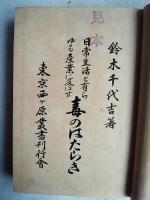 見本
鈴木千代吉著
日常生活と有ら
ゆる産業に及ぼす
毒のはたらき
東京西ヶ原叢書刊行會